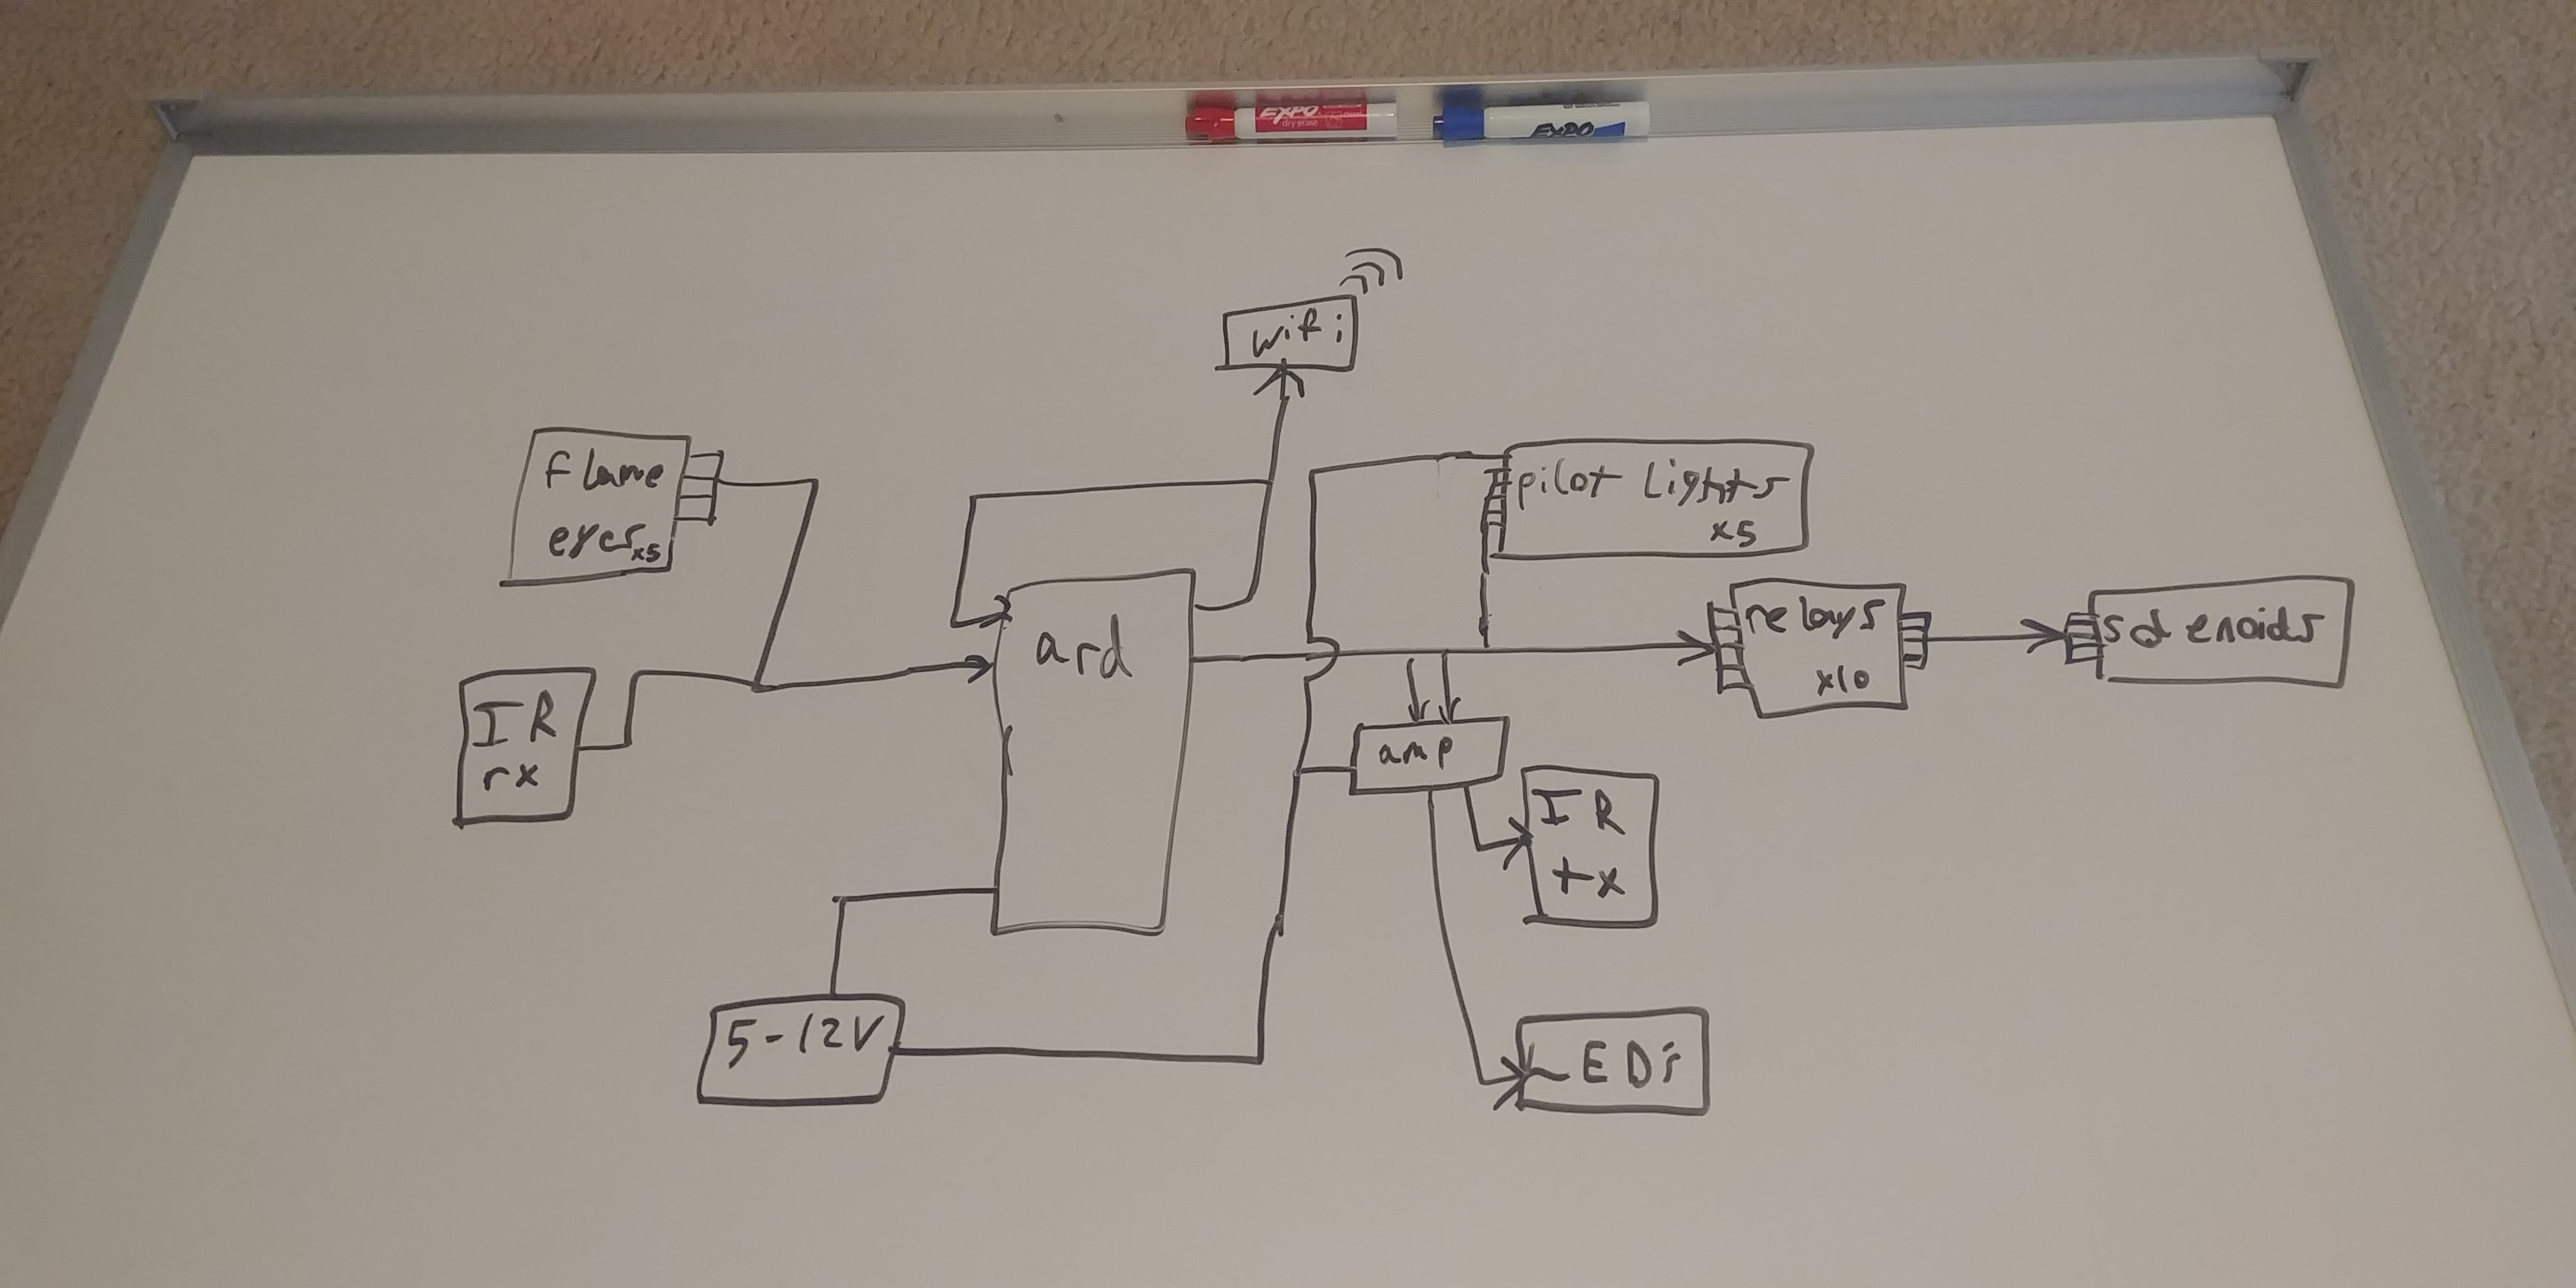 EXPO
dry erase
EXPO
wifi
flame
eyes x5
pilot Lights
x5
ard
relays
x10
solenoids
IR
rx
amp
IR
tx
5-12V
LEDs